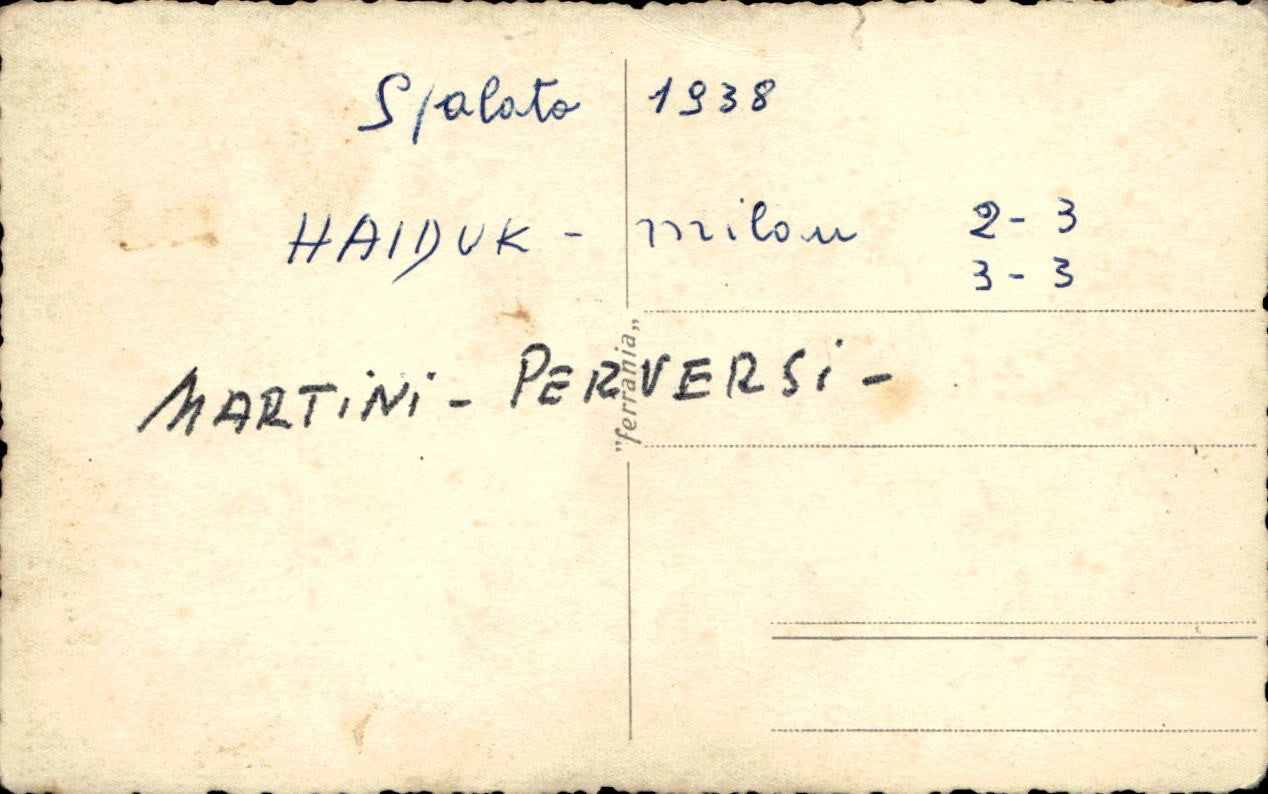 Spalato 1938
HAIDUK - milan 2-3
3-3
MARTiNi - PERVERSi -
"ferrania"